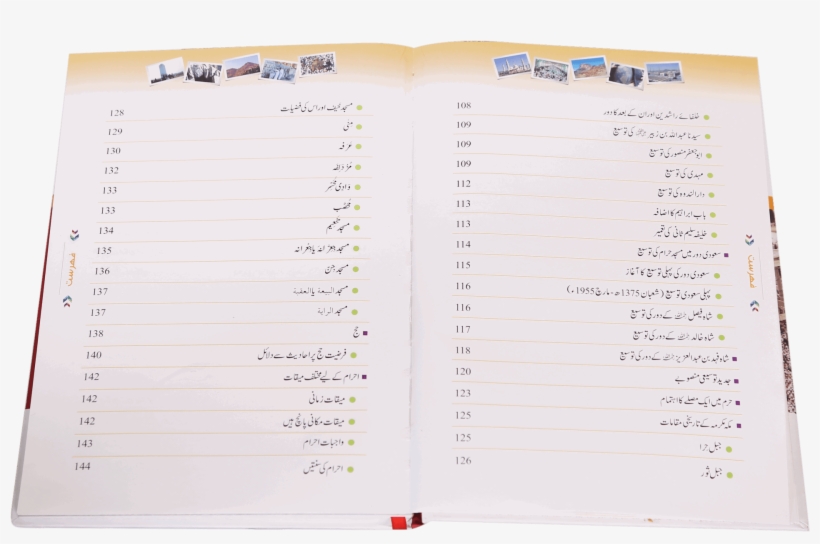 خلفائے راشدین اور ان کے بعد کا دور 108
سیدنا عبداللہ بن زبیر کی توسیع 109
ابوجعفر منصور کی توسیع 109
مہدی کی توسیع 109
دارالندوہ کی توسیع 112
باب ابراہیم کا اضافہ 113
خلیفہ سلیم ثانی کی تعمیر 113
سعودی دور میں مسجد حرام کی توسیع 114
سعودی دور کی پہلی توسیع کا آغاز 115
پہلی سعودی توسیع (شعبان 1375ھ، مارچ 1955ء) 116
شاہ فیصل کے دور کی توسیع 116
شاہ خالد کے دور کی توسیع 117
شاہ فہد بن عبدالعزیز کے دور کی توسیع 118
جدید توسیعی منصوبے 120
حرم میں ایک مصلے کا اہتمام 123
مکہ مکرمہ کے تاریخی مقامات 125
جبل حرا 125
جبل ثور 126
فہرست
مسجد خیف اور اس کی فضیلت 128
منی 129
عرفہ 130
مزدلفہ 132
وادی محسر 133
محصب 133
مسجد تنعیم 134
مسجد جعرانہ یا جعرانہ 135
مسجد جن 136
مسجد البيعة یا العقبة 137
مسجد الراية 137
حج 138
فرضیت حج پر احادیث سے دلائل 140
احرام کے لیے مختلف میقات 142
میقات زمانی 142
میقات مکانی پانچ ہیں 142
واجبات احرام 143
احرام کی سنتیں 144
فہرست